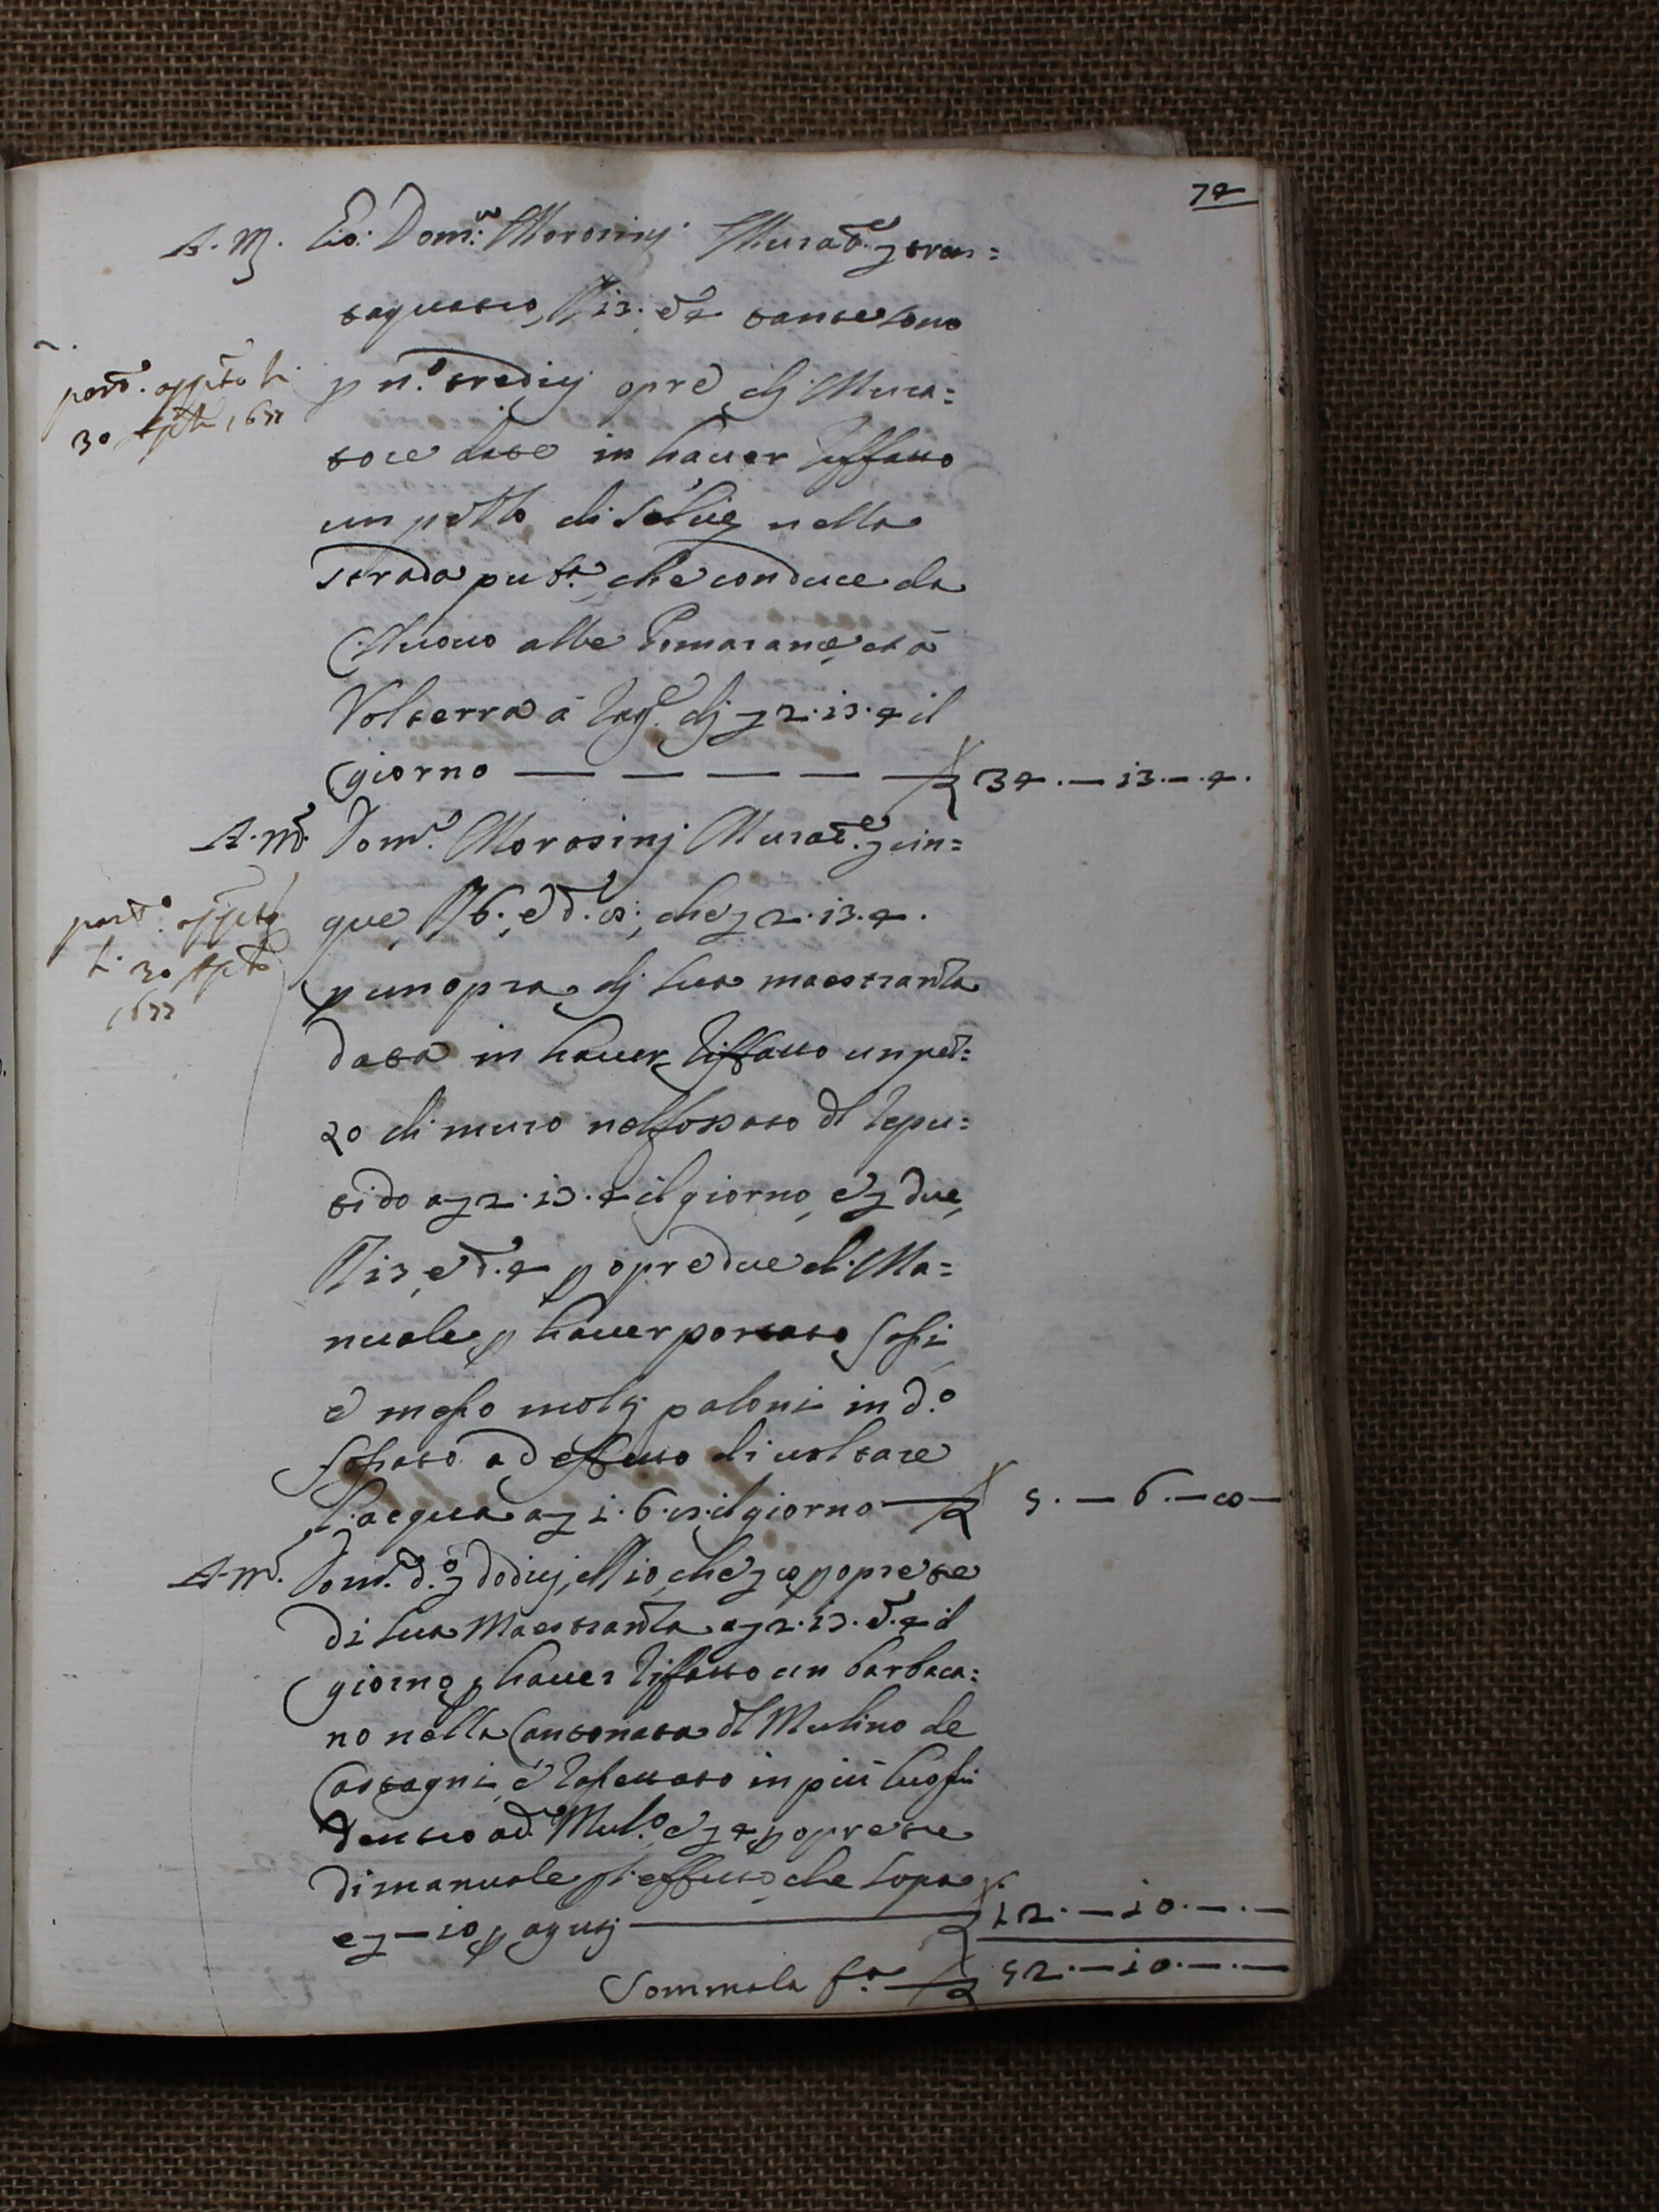 74
A. M. Gio: Dom:co Morosinj Murat.e £ tren=
taquattro, ß 13. d 4 tante sono
p n.o tredicj opre dj Mura=
tore date in hauer rifatto
un pezzo di Selice nella
strada pub.ca che conduce da
C. Nuouo alle Pomarance, et à
Volterra à rag.e dj £ 2. 13. 4 il
giorno — — — — — £ 34. — 13. — 4.
port.o
30 1677
A. M.o Dom.o Morosinj Murat.e £ cin=
que, ß 6. e d. 8; che £ 2. 13. 4.
p un opra dj sua maestranza
data in hauer rifatto un pez=
zo di muro nel fossato dl
a £ 2. 13. 4 il giorno, e £ due,
ß 13, e d. 4 p opre due di Ma=
nuale p hauer portato sassi
e messo molti paloni in d.o
fossato ad effetto di uoltare
l'acqua a £ 1. 6. 8 il giorno — £ 5. — 6. — 8 —
port.o
li 30
1677
A. M.o Dom.o d.o £ dodicj, ß 10, che £ 8 p opre tre
di sua Maestranza a £ 2. 13. d. 4 il
giorno p hauer rifatto un barbaca=
no nella Cantonata dl Mulino de
Castagni, e rassettato in più luoghi
dentro a d.o Mul.o, e £ 4 p opre tre
di manuale p l'effetto che sopra
e £ — 10 p aguti — £ 12. — 10. — . —
Somma la f.a — £ 52. — 10. — . —